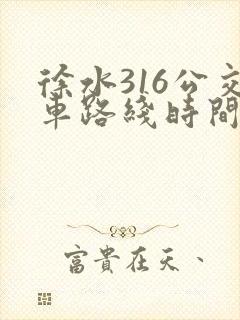 徐水316公交
車路綫時間
富貴在天、